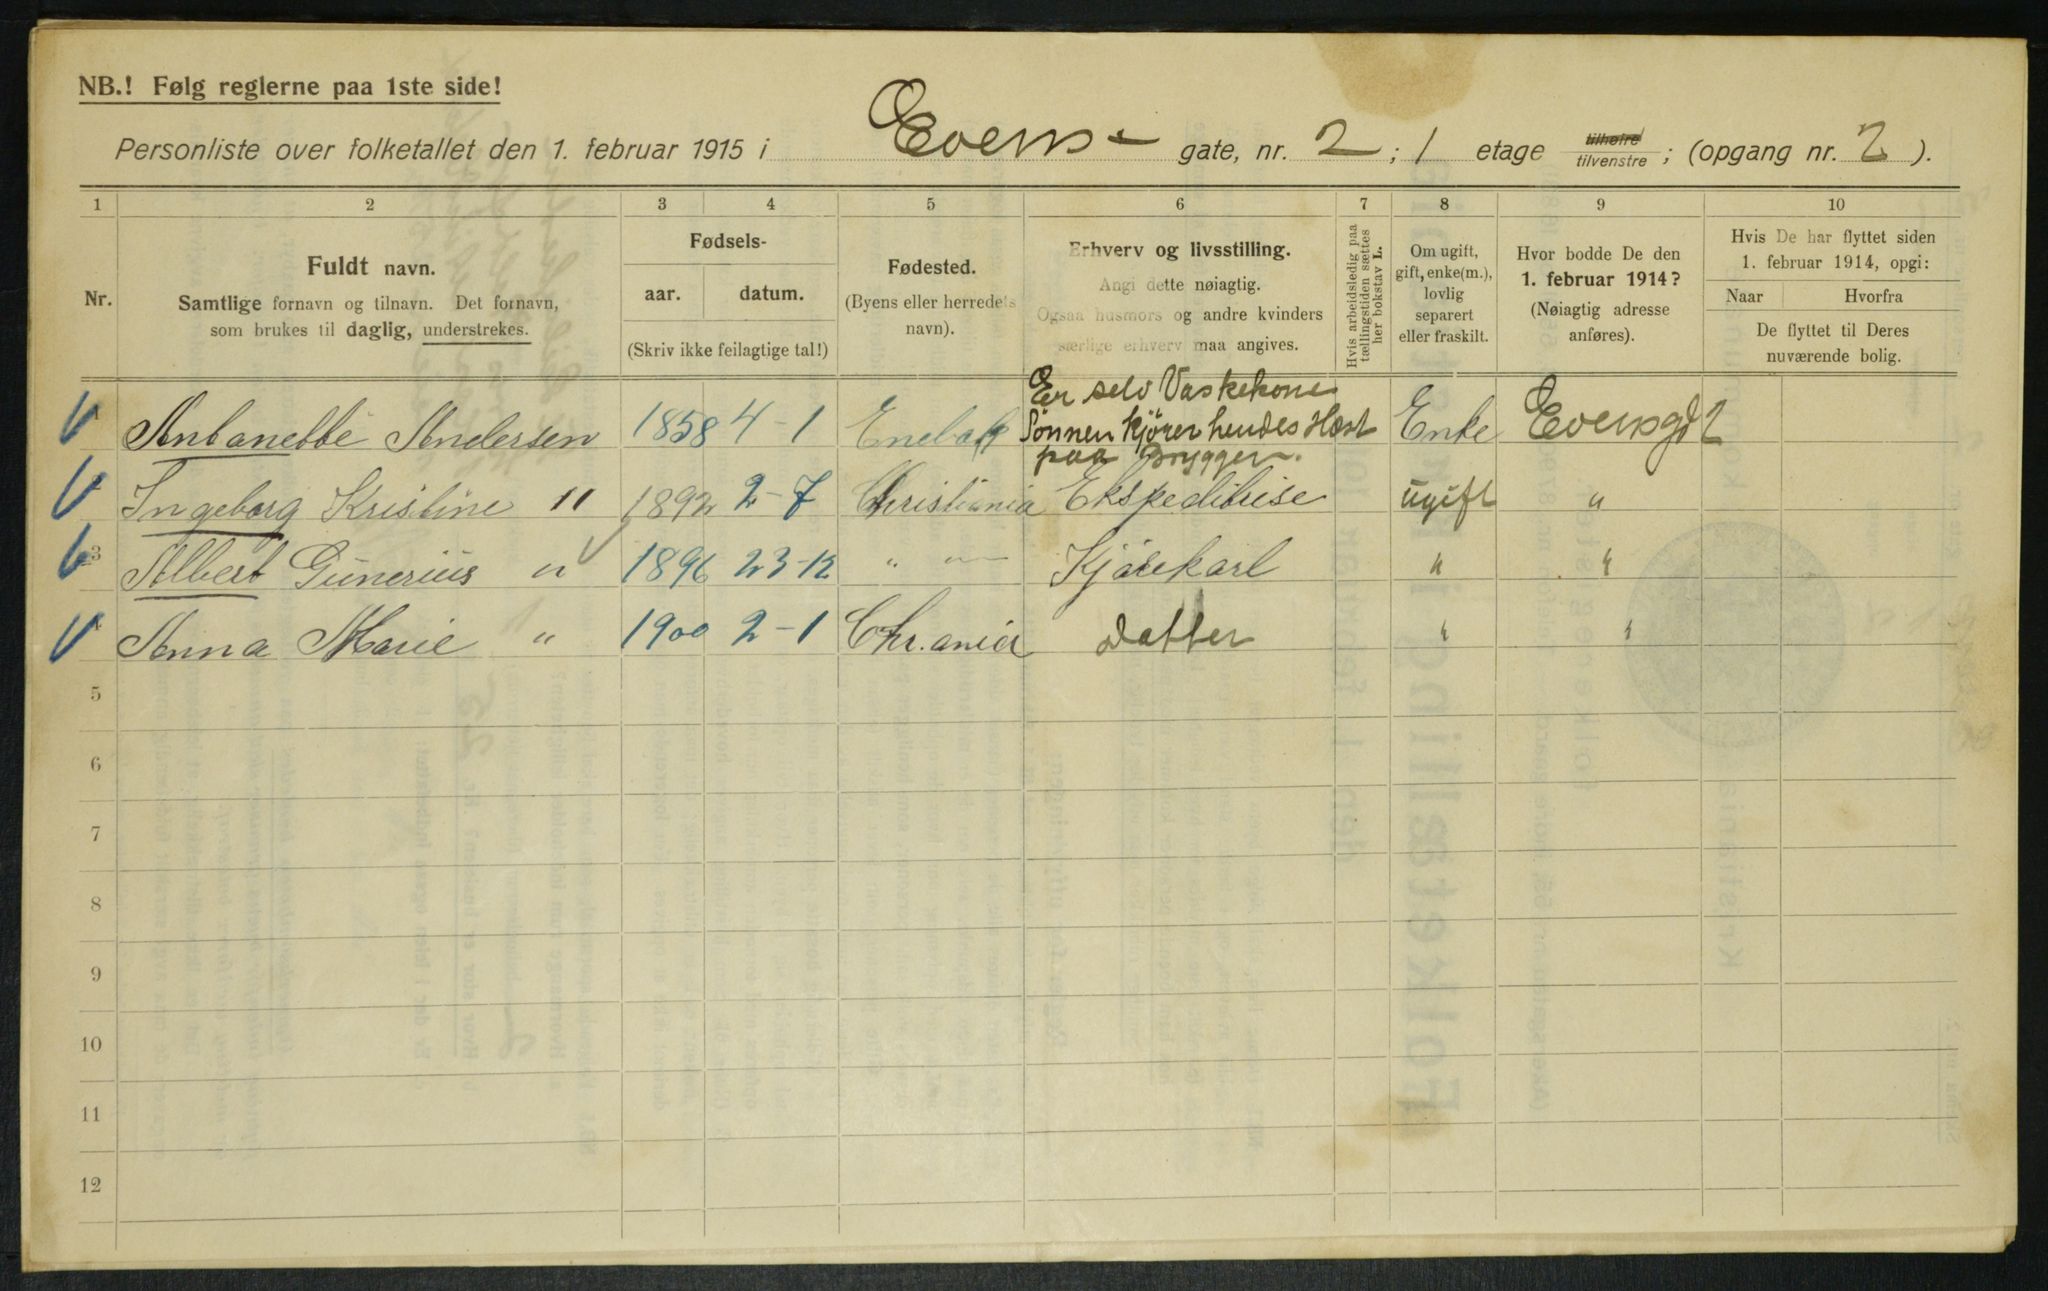 NB.! Følg reglerne paa 1ste side!
Personliste over folketallet den 1. februar 1915 i Evens- gate, nr. 2; 1 etage tilhøire tilvenstre; (opgang nr. 2).
1 2 3 4 5 6 7 8 9 10
Nr.
Fuldt navn.
Samtlige fornavn og tilnavn. Det fornavn,
som brukes til daglig, understrekes.
Fødsels-
aar. datum.
(Skriv ikke feilagtige tal!)
Fødested.
(Byens eller herredets
navn).
Erhverv og livsstilling.
Angi dette nøiagtig.
Ogsaa husmors og andre kvinders
særlige erhverv maa angives.
Hvis arbeidsledig paa
tællingstiden sættes
her bokstav L.
Om ugift,
gift, enke(m.),
lovlig
separert
eller fraskilt.
Hvor bodde De den
1. februar 1914?
(Nøiagtig adresse
anføres).
Hvis De har flyttet siden
1. februar 1914, opgi:
Naar Hvorfra
De flyttet til Deres
nuværende bolig.
1 Antanette Andersen 1858 4-1 Enebak Er selv Vaskekone
Sønnen kjører hendes Hest
paa Bryggen. Enke Evensgd 2
2 Ingeborg Kristine " 1892 2-7 Christiania Ekspeditrise ugift "
3 Albert Gunerius " 1896 23-12 " " Kjørekarl " "
4 Anna Marie " 1900 2-1 Chr.ania Datter " "
5
6
7
8
9
10
11
12